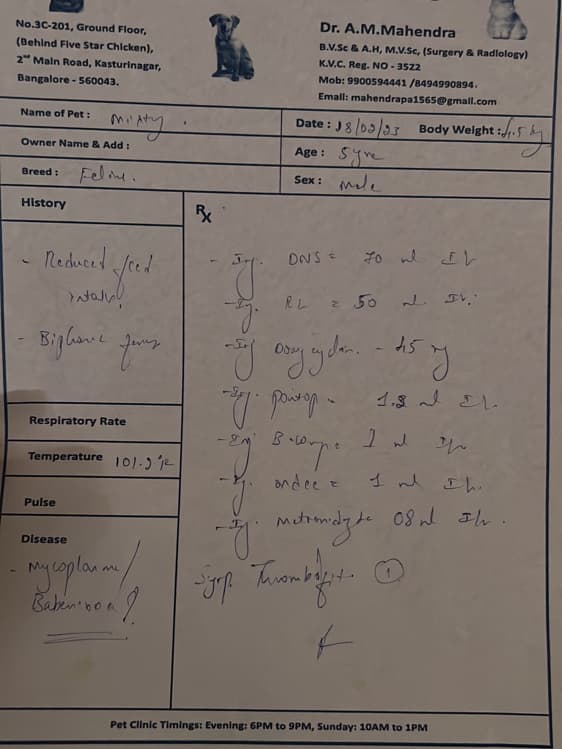 No.3C-201, Ground Floor,
(Behind Five Star Chicken),
2nd Main Road, Kasturinagar,
Bangalore - 560043.
Dr. A.M.Mahendra
B.V.Sc & A.H, M.V.Sc, (Surgery & Radiology)
K.V.C. Reg. NO - 3522
Mob: 9900594441 /8494990894.
Email: mahendrapa1565@gmail.com
Name of Pet :
Date : 18/02/23 Body Weight : 4.5 kg
Owner Name & Add :
Age : 5 yrs
Breed : Feline.
Sex : Male
History
- Reduced feed
intake
- Biphasic
Respiratory Rate
Temperature 101.9°F
Pulse
Disease
- Mycoplasma/
Babesiosis?
Rx
- Inj. DNS = 70 ml IV
- Inj. RL = 50 ml IV.
- Inj Doxycyclin. - 45 mg
- Inj. pantop - 1.8 ml IV.
- Inj B-comp = 1 ml IV
- Inj. ondee = 1 ml IV.
- Inj. metronidazole 08 ml IV.
Syrp. Thrombofit. ①
Pet Clinic Timings: Evening: 6PM to 9PM, Sunday: 10AM to 1PM